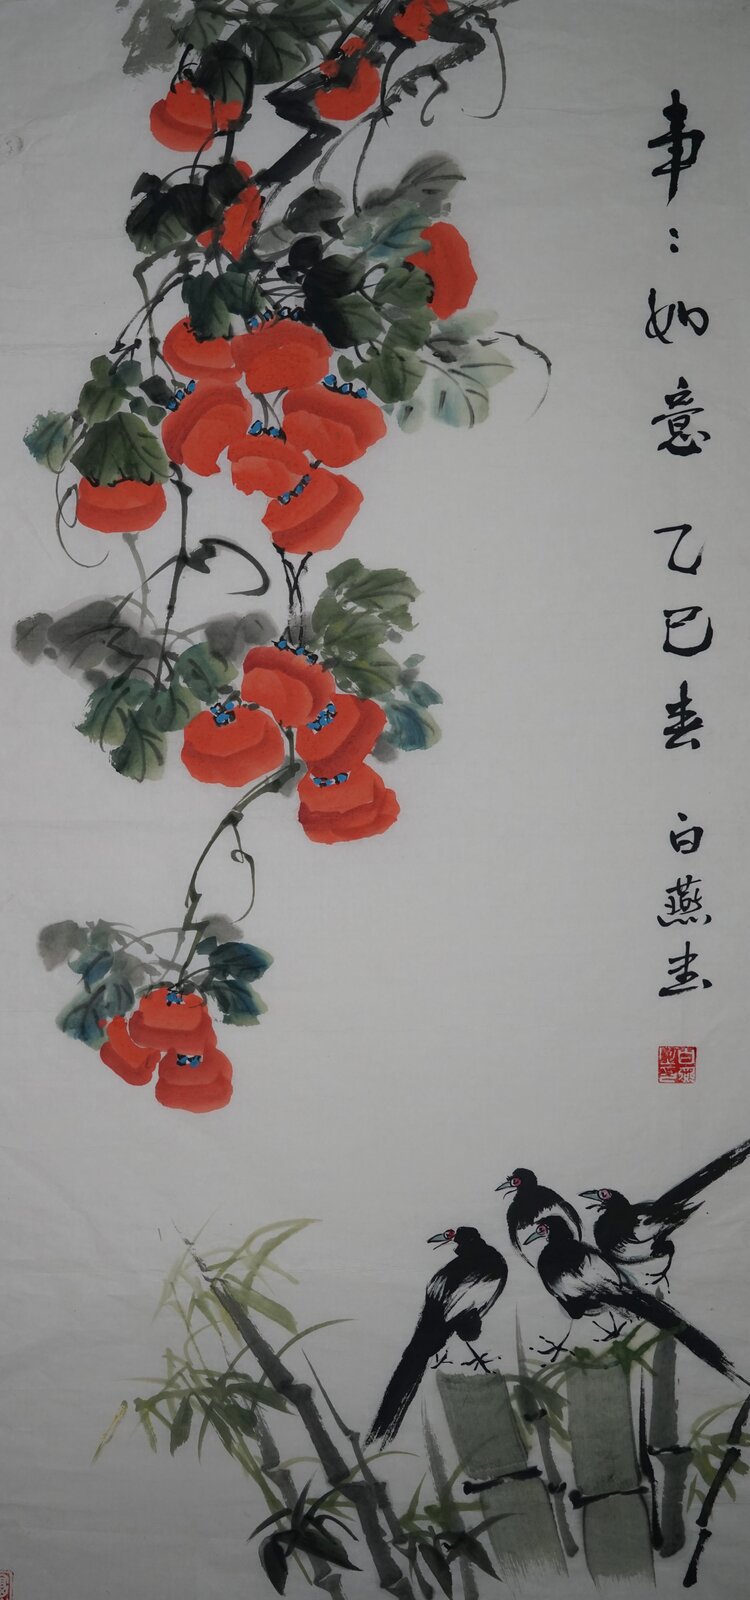 事：如意 乙巳春 白燕画
白燕